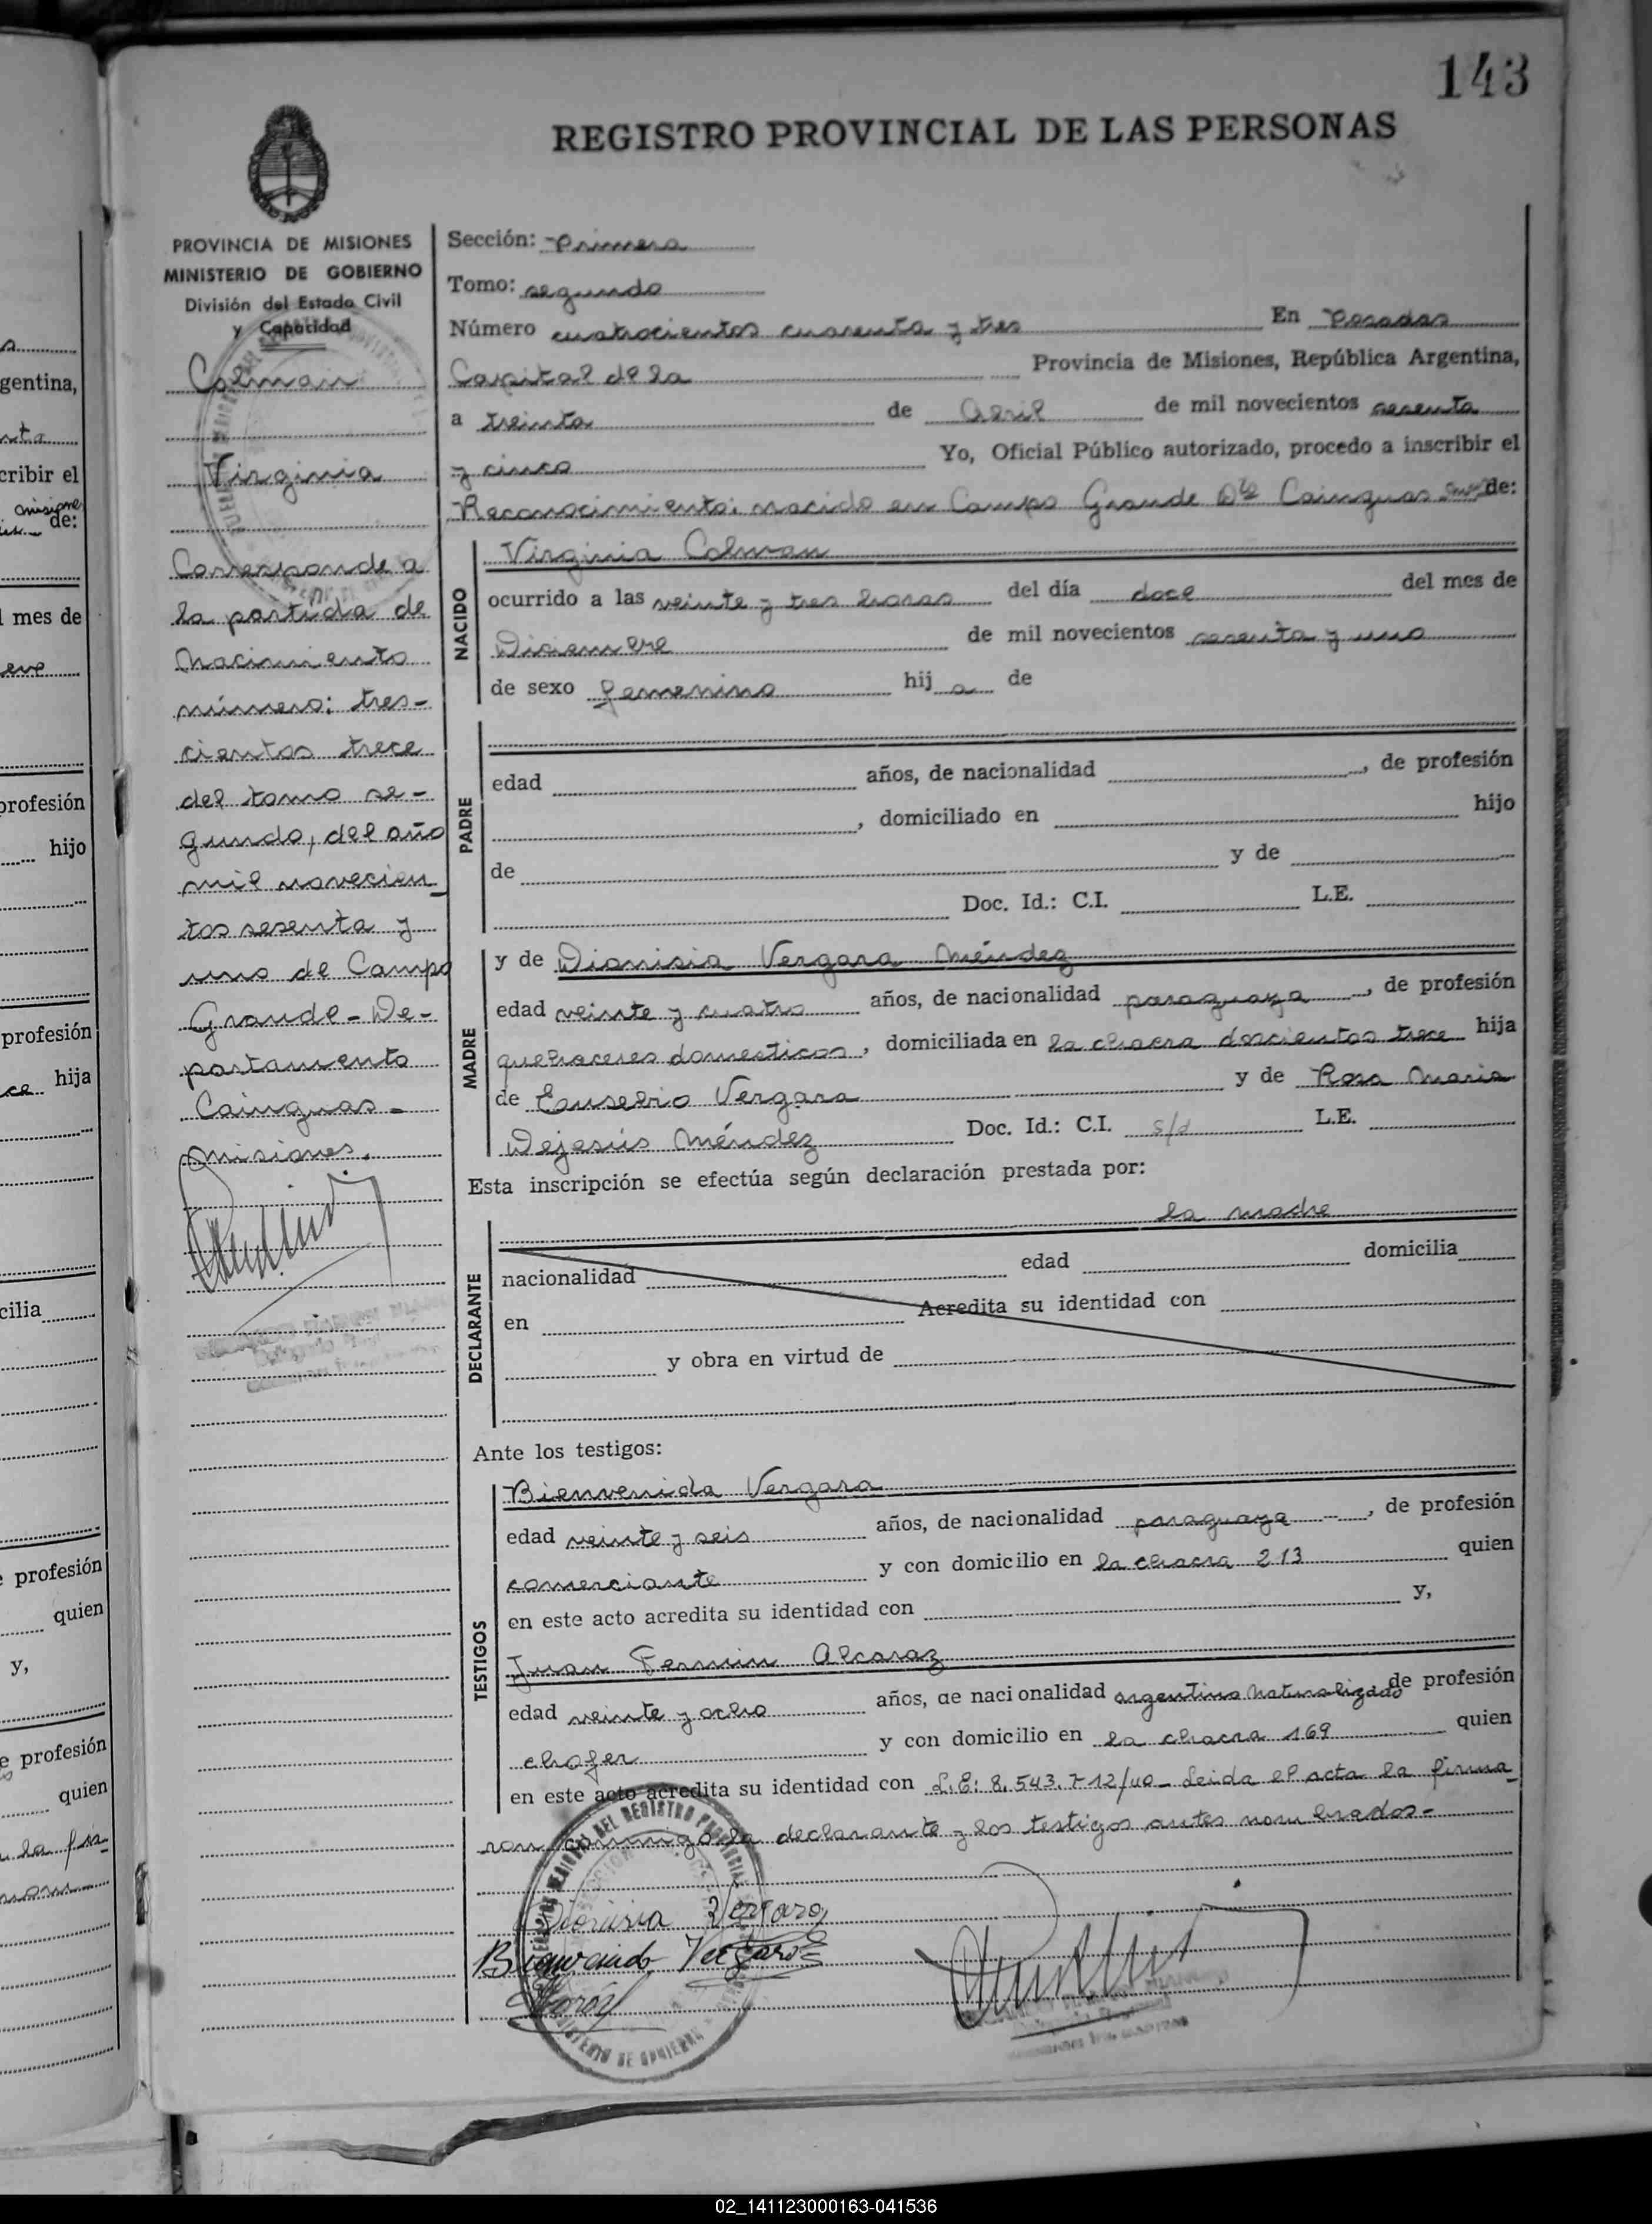 143
REGISTRO PROVINCIAL DE LAS PERSONAS
PROVINCIA DE MISIONES
MINISTERIO DE GOBIERNO
División del Estado Civil
y Capacidad
Colman
Virginia
Corresponde a
la partida de
Nacimiento
número: tres-
cientos trece
del tomo se-
gundo, del año
mil novecien_
tos sesenta y
uno de Campo
Grande - De-
partamento
Cainguas -
Misiones.
Sección: Primera
Tomo: segundo
Número cuatrocientos cuarenta y tres En Posadas
Capital de la Provincia de Misiones, República Argentina,
a treinta de Abril de mil novecientos sesenta
y cinco Yo, Oficial Público autorizado, procedo a inscribir el
Reconocimiento: nacido en Campo Grande Dto Cainguas de:
NACIDO
Virginia Colman
ocurrido a las veinte y tres horas del día doce del mes de
Diciembre de mil novecientos sesenta y uno
de sexo femenino hij a de
PADRE
edad años, de nacionalidad , de profesión
, domiciliado en hijo
de y de
Doc. Id.: C.I. L.E.
MADRE
y de Dionisia Vergara Méndez
edad veinte y cuatro años, de nacionalidad paraguaya , de profesión
quehaceres domesticos , domiciliada en la chacra doscientos trece hija
de Eusebio Vergara y de Rosa Maria
Dejesús Méndez Doc. Id.: C.I. s/d L.E.
Esta inscripción se efectúa según declaración prestada por:
la madre
DECLARANTE
nacionalidad edad domicilia
en Acredita su identidad con
y obra en virtud de
Ante los testigos:
TESTIGOS
Bienvenida Vergara
edad veinte y seis años, de nacionalidad paraguaya , de profesión
comerciante y con domicilio en la chacra 213 quien
en este acto acredita su identidad con y,
Juan Fermin Alcaraz
edad veinte y ocho años, de nacionalidad argentino naturalizado de profesión
chofer y con domicilio en la chacra 169 quien
en este acto acredita su identidad con L.E: 8.543.712/40_ Leida el acta la firma_
ron conmigo la declarante y los testigos antes nombrados-
Dionisia Vergara
Bienvenida Vergara
02_141123000163-041536